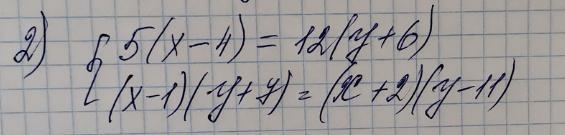 2) { 5(x-4) = 12(y+6)
(x-1)(y+y) = (x+2)(y-11)